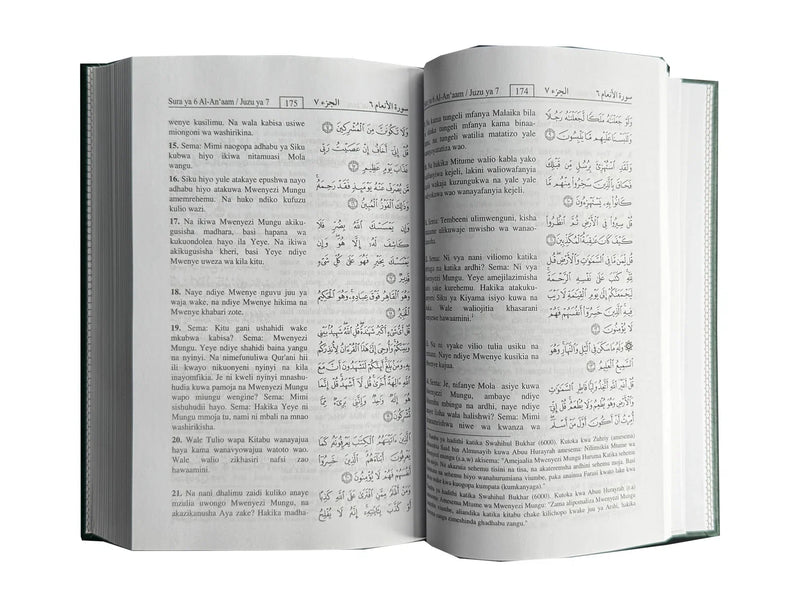 Sura ya 6 Al-An'aam / Juzu ya 7 174 الجزء ٧ سورة الأنعام ٦
kama tungeli mfanya Malaika bila
tungeli mfanya kama binaa-
na tungeli watilia matatizo yale
wa.
hakika Mitume walio kabla yako
kejeli, lakini waliowafanyia
wakaja kuzungukwa na yale yale
wao wanayafanyia kejeli.
Sema: Tembeeni ulimwenguni, kisha
ulikuwaje mwisho wa wanao-
Sema: Ni vya nani viliomo katika
na katika ardhi? Sema: Ni vya
Mwenyezi Mungu. Yeye amejilazimisha
yake kurehemu. Hakika atakuku-
Siku ya Kiyama isiyo kuwa na
Wale waliojitia khasarani
hawaamini.
Na ni vyake vilio tulia usiku na
Naye ndiye Mwenye kusikia na
kujua.
Sema: Je, nifanye Mola asiye kuwa
Mwenyezi Mungu, ambaye ndiye
mbingu na ardhi, naye ndiye
lisha wala halishwi? Sema: Mimi
niwe wa kwanza wa
وَلَوْ جَعَلْنَٰهُ مَلَكًا لَّجَعَلْنَٰهُ رَجُلًا
وَلَلَبَسْنَا عَلَيْهِم مَّا يَلْبِسُونَ ٩
وَلَقَدِ ٱسْتُهْزِئَ بِرُسُلٍ مِّن قَبْلِكَ
فَحَاقَ بِٱلَّذِينَ سَخِرُوا۟ مِنْهُم مَّا
كَانُوا۟ بِهِۦ يَسْتَهْزِءُونَ ١٠
قُلْ سِيرُوا۟ فِى ٱلْأَرْضِ ثُمَّ ٱنظُرُوا۟
كَيْفَ كَانَ عَٰقِبَةُ ٱلْمُكَذِّبِينَ ١١
قُل لِّمَن مَّا فِى ٱلسَّمَٰوَٰتِ وَٱلْأَرْضِ قُل
لِّلَّهِ كَتَبَ عَلَىٰ نَفْسِهِ ٱلرَّحْمَةَ
لَيَجْمَعَنَّكُمْ إِلَىٰ يَوْمِ ٱلْقِيَٰمَةِ لَا رَيْبَ
فِيهِ ٱلَّذِينَ خَسِرُوٓا۟ أَنفُسَهُمْ فَهُمْ
لَا يُؤْمِنُونَ ١٢
۞ وَلَهُۥ مَا سَكَنَ فِى ٱلَّيْلِ وَٱلنَّهَارِ وَهُوَ
ٱلسَّمِيعُ ٱلْعَلِيمُ ١٣
قُلْ أَغَيْرَ ٱللَّهِ أَتَّخِذُ وَلِيًّا فَاطِرِ ٱلسَّمَٰوَٰتِ
وَٱلْأَرْضِ وَهُوَ يُطْعِمُ وَلَا يُطْعَمُ قُلْ إِنِّىٓ
أُمِرْتُ أَنْ أَكُونَ أَوَّلَ مَنْ أَسْلَمَ
ya hadithi katika Swahihul Bukhar (6000). Kutoka kwa Zuhriy (amesema)
Said bin Almusayib kuwa Abuu Hurayrah amesema: Nilimsikia Mtume wa
Mungu (s.a.w) akisema: "Amejaalia Mwenyezi Mungu Huruma Katika sehemu
Na akazuia sehemu tisini na tisa, na akateremsha ardhini sehemu moja. Basi
sehemu hiyo moja ndio viumbe wanahurumiana, paka unaiona Farasi kwato lake kwa
wake kwa kuogopa kumpata (kumkanyaga)."
ya hadithi katika Swahihul Bukhar (6000). Kutoka kwa Abuu Hurayrah (r.a)
Amesema Mtume wa Mwenyezi Mungu: "Zama alipomaliza Mwenyezi Mungu
viumbe, aliandika katika kitabu chake kilichopo kwake juu ya Arshi, hakika
zangu zimeshinda ghadhabu zangu."
Sura ya 6 Al-An'aam / Juzu ya 7 175 الجزء ٧ سورة الأنعام ٦
wenye kusilimu. Na wala kabisa usiwe
miongoni wa washirikina.
15. Sema: Mimi naogopa adhabu ya Siku
kubwa hiyo ikiwa nitamuasi Mola
wangu.
16. Siku hiyo yule atakaye epushwa nayo
adhabu hiyo atakuwa Mwenyezi Mungu
amemrehemu. Na huko ndiko kufuzu
kulio wazi.
17. Na ikiwa Mwenyezi Mungu akiku-
gusisha madhara, basi hapana wa
kukuondolea hayo ila Yeye. Na ikiwa
akikugusisha kheri, basi Yeye ndiye
Mwenye uweza wa kila kitu.
18. Naye ndiye Mwenye nguvu juu ya
waja wake, na ndiye Mwenye hikima na
Mwenye khabari zote.
19. Sema: Kitu gani ushahidi wake
mkubwa kabisa? Sema: Mwenyezi
Mungu. Yeye ndiye shahidi baina yangu
na nyinyi. Na nimefunuliwa Qur'ani hii
ili kwayo nikuonyeni nyinyi na kila
inayomfikia. Je ni kweli nyinyi mnashu-
hudia kuwa pamoja na Mwenyezi Mungu
wapo miungu wengine? Sema: Mimi
sishuhudii hayo. Sema: Hakika Yeye ni
Mungu mmoja tu, nami ni mbali na mnao
washirikisha.
20. Wale Tulio wapa Kitabu wanayajua
haya kama wanavyowajua watoto wao.
Wale walio zikhasiri nafsi zao
hawaamini.
21. Na nani dhalimu zaidi kuliko anaye
mzulia uwongo Mwenyezi Mungu, na
akazikanusha Aya zake? Hakika madha-
وَلَا تَكُونَنَّ مِنَ ٱلْمُشْرِكِينَ ١٤
قُلْ إِنِّىٓ أَخَافُ إِنْ عَصَيْتُ رَبِّى
عَذَابَ يَوْمٍ عَظِيمٍ ١٥
مَّن يُصْرَفْ عَنْهُ يَوْمَئِذٍ فَقَدْ رَحِمَهُۥ
وَذَٰلِكَ ٱلْفَوْزُ ٱلْمُبِينُ ١٦
وَإِن يَمْسَسْكَ ٱللَّهُ بِضُرٍّ فَلَا
كَاشِفَ لَهُۥٓ إِلَّا هُوَ وَإِن
يَمْسَسْكَ بِخَيْرٍ فَهُوَ عَلَىٰ كُلِّ شَىْءٍ
قَدِيرٌ ١٧
وَهُوَ ٱلْقَاهِرُ فَوْقَ عِبَادِهِۦ وَهُوَ ٱلْحَكِيمُ
ٱلْخَبِيرُ ١٨
قُلْ أَىُّ شَىْءٍ أَكْبَرُ شَهَٰدَةً قُلِ ٱللَّهُ شَهِيدٌۢ بَيْنِى
وَبَيْنَكُمْ وَأُوحِىَ إِلَىَّ هَٰذَا ٱلْقُرْءَانُ لِأُنذِرَكُم
بِهِۦ وَمَنۢ بَلَغَ أَئِنَّكُمْ لَتَشْهَدُونَ أَنَّ مَعَ
ٱللَّهِ ءَالِهَةً أُخْرَىٰ قُل لَّآ أَشْهَدُ قُلْ إِنَّمَا
هُوَ إِلَٰهٌ وَٰحِدٌ وَإِنَّنِى بَرِىٓءٌ مِّمَّا
تُشْرِكُونَ ١٩
ٱلَّذِينَ ءَاتَيْنَٰهُمُ ٱلْكِتَٰبَ يَعْرِفُونَهُۥ كَمَا
يَعْرِفُونَ أَبْنَآءَهُمُ ٱلَّذِينَ خَسِرُوٓا۟
أَنفُسَهُمْ فَهُمْ لَا يُؤْمِنُونَ ٢٠
وَمَنْ أَظْلَمُ مِمَّنِ ٱفْتَرَىٰ عَلَى ٱللَّهِ كَذِبًا
أَوْ كَذَّبَ بِـَٔايَٰتِهِۦٓ إِنَّهُۥ لَا يُفْلِحُ